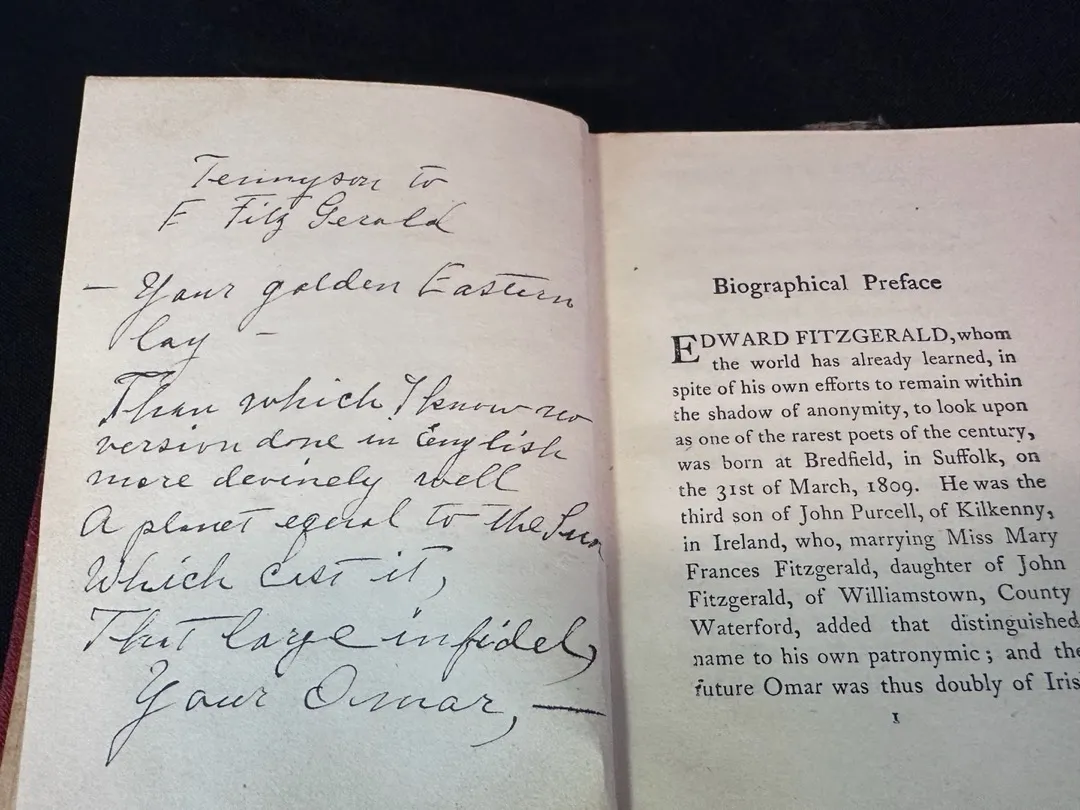 Tennyson to
E Fitz Gerald
— Your golden Eastern
lay —
Than which I know no
version done in English
more devinely well
A planet equal to the Sun
Which cast it,
That large infidel,
Your Omar, —
Biographical Preface
EDWARD FITZGERALD, whom
the world has already learned, in
spite of his own efforts to remain within
the shadow of anonymity, to look upon
as one of the rarest poets of the century,
was born at Bredfield, in Suffolk, on
the 31st of March, 1809. He was the
third son of John Purcell, of Kilkenny,
in Ireland, who, marrying Miss Mary
Frances Fitzgerald, daughter of John
Fitzgerald, of Williamstown, County
Waterford, added that distinguished
name to his own patronymic; and the
future Omar was thus doubly of Iris
1